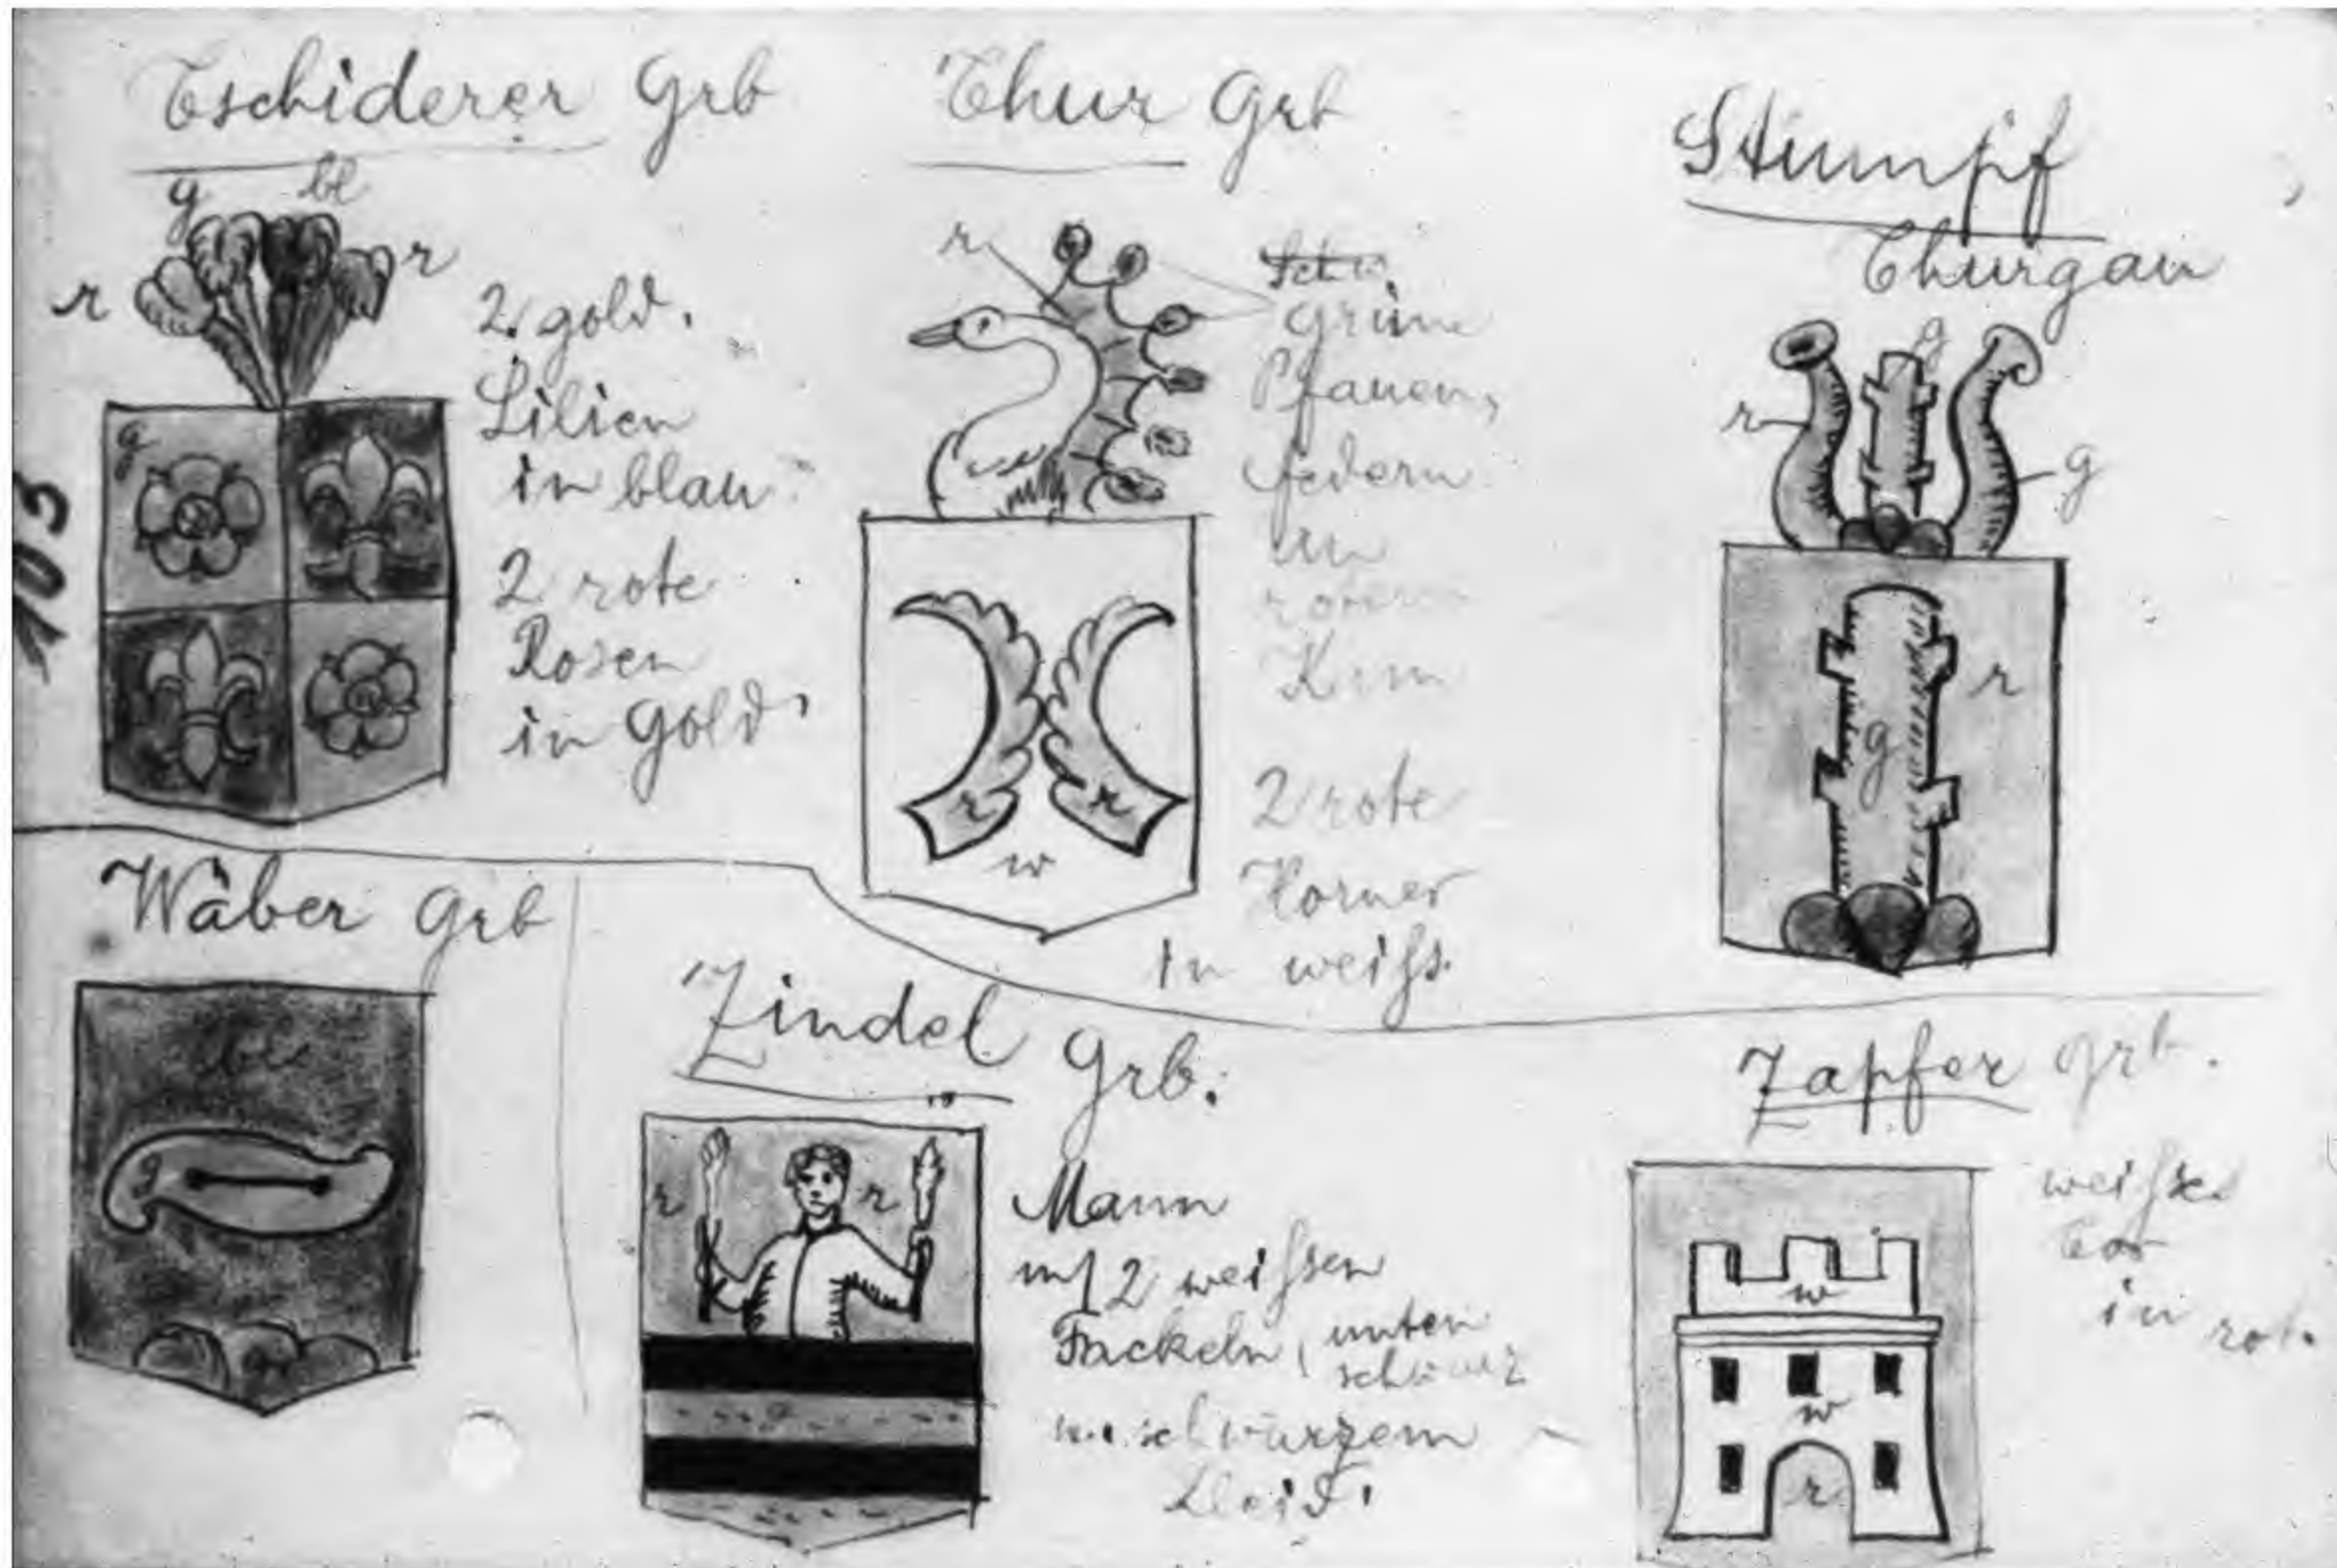 Tschiderer Grb
g bl
r r
2 gold.
Lilien
in blau
2 rote
Rosen
in Gold.
g
103
Thur Grb
r
Schw.
Grüne
Pfauen,
federn
an
rotem
Kam
2 rote
Hörner
in weiß.
r r
w
Stumpf
Thurgau
g
r
g
r
g
Wäber Grb
bl
g
Zindel Grb.
r r
Mann
m/2 weißen
Fackeln (unten
schwarz
schwarzem
Kleid.
Zapfer Grb.
weißes
Tor
in rot.
w
w
r